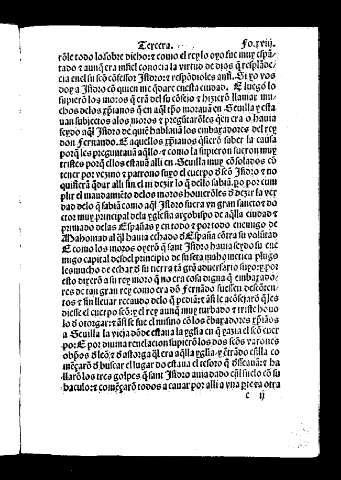 Tercera. Fo.xviij.
rõle todo lo sobre dicho: τ como el rey lo oyo fue muy espã
tado τ aunq̃ era infiel conocia la virtud de dios q̃ resplãde
cia en el su scõ cõfessor Isidro: τ respõdioles assi. Si yo vos
doy a Isidro cõ quien me q̃dare en esta ciudad. E luego lo
supierõ los moros q̃ erã del su cõsejo τ hizierõ llamar mu
chos delos xp̃ianos q̃ en aq̃l tp̃o morauã en Seuilla y esta
uan subjectos alos moros τ pregũtarõles q̃en era o hauia
seydo aq̃l Isidro de quiẽ hablauã los embaxadores del rey
don Fernando. E aquellos xp̃ianos q̃sierõ saber la causa
porq̃ les preguntauã aq̃llo: τ como la supierõ fuerõ muy
tristes porq̃ ellos estauã alli en Seuilla muy cõsolados cõ
tener por vezino τ patrono suyo el cuerpo d̃l scõ Isidro τ no
quisierã q̃dar alli sin el ni dezir lo q̃ dello sabiã. po por cum
plir el mandamiẽto delos moros houierõles d̃ dezir la ver
dad delo q̃ sabiã como aq̃l Isidro fuera vn gran sancto τ do
ctor muy principal dela yglesia arçobispo de aq̃lla ciudad τ
primado delas Españas y en todo τ por todo enemigo de
Mahomad al q̃l hauia echado d̃ España cõtra su volũtad
E como los moros oyerõ q̃ sant Isidro hauia seydo su ene
migo capital desdel principio de su seta mahometica plugo
les mucho de echar d̃ su tierra tã grã aduersario suyo: y por
esto dixerõ a su rey moro q̃ no era cosa digna q̃ embaxado
res de tan gran rey como era dõ Fernãdo fuessen descõten
tos τ sin lleuar recaudo delo q̃ pediã: τ assi le acõsejarõ q̃ les
diesse el cuerpo scõ: y el rey aunq̃ muy turbado τ triste houo
lo d̃ otorgar: τ assi se fue el mismo cõ los ẽbaxadores xp̃iãos
a Seuilla la vieja dõde estaua la yglia en q̃ yazia el scõ cuer
po: E por diuina reuelacion supierõ los dos scõs varones
obp̃os d̃ leõ: τ d̃ astorga q̃l era aq̃lla yglia: y ẽtrãdo eñlla co
mẽçarõ d̃ buscar el lugar do estaua el tesoro q̃ d̃sseauã: τ ha
llarõ los tres golpes q̃ sant Isidro auia dado eñl suelo cõ su
baculo: τ comẽçarõ todos a cauar por alli a vna pte τ a otra
c ij